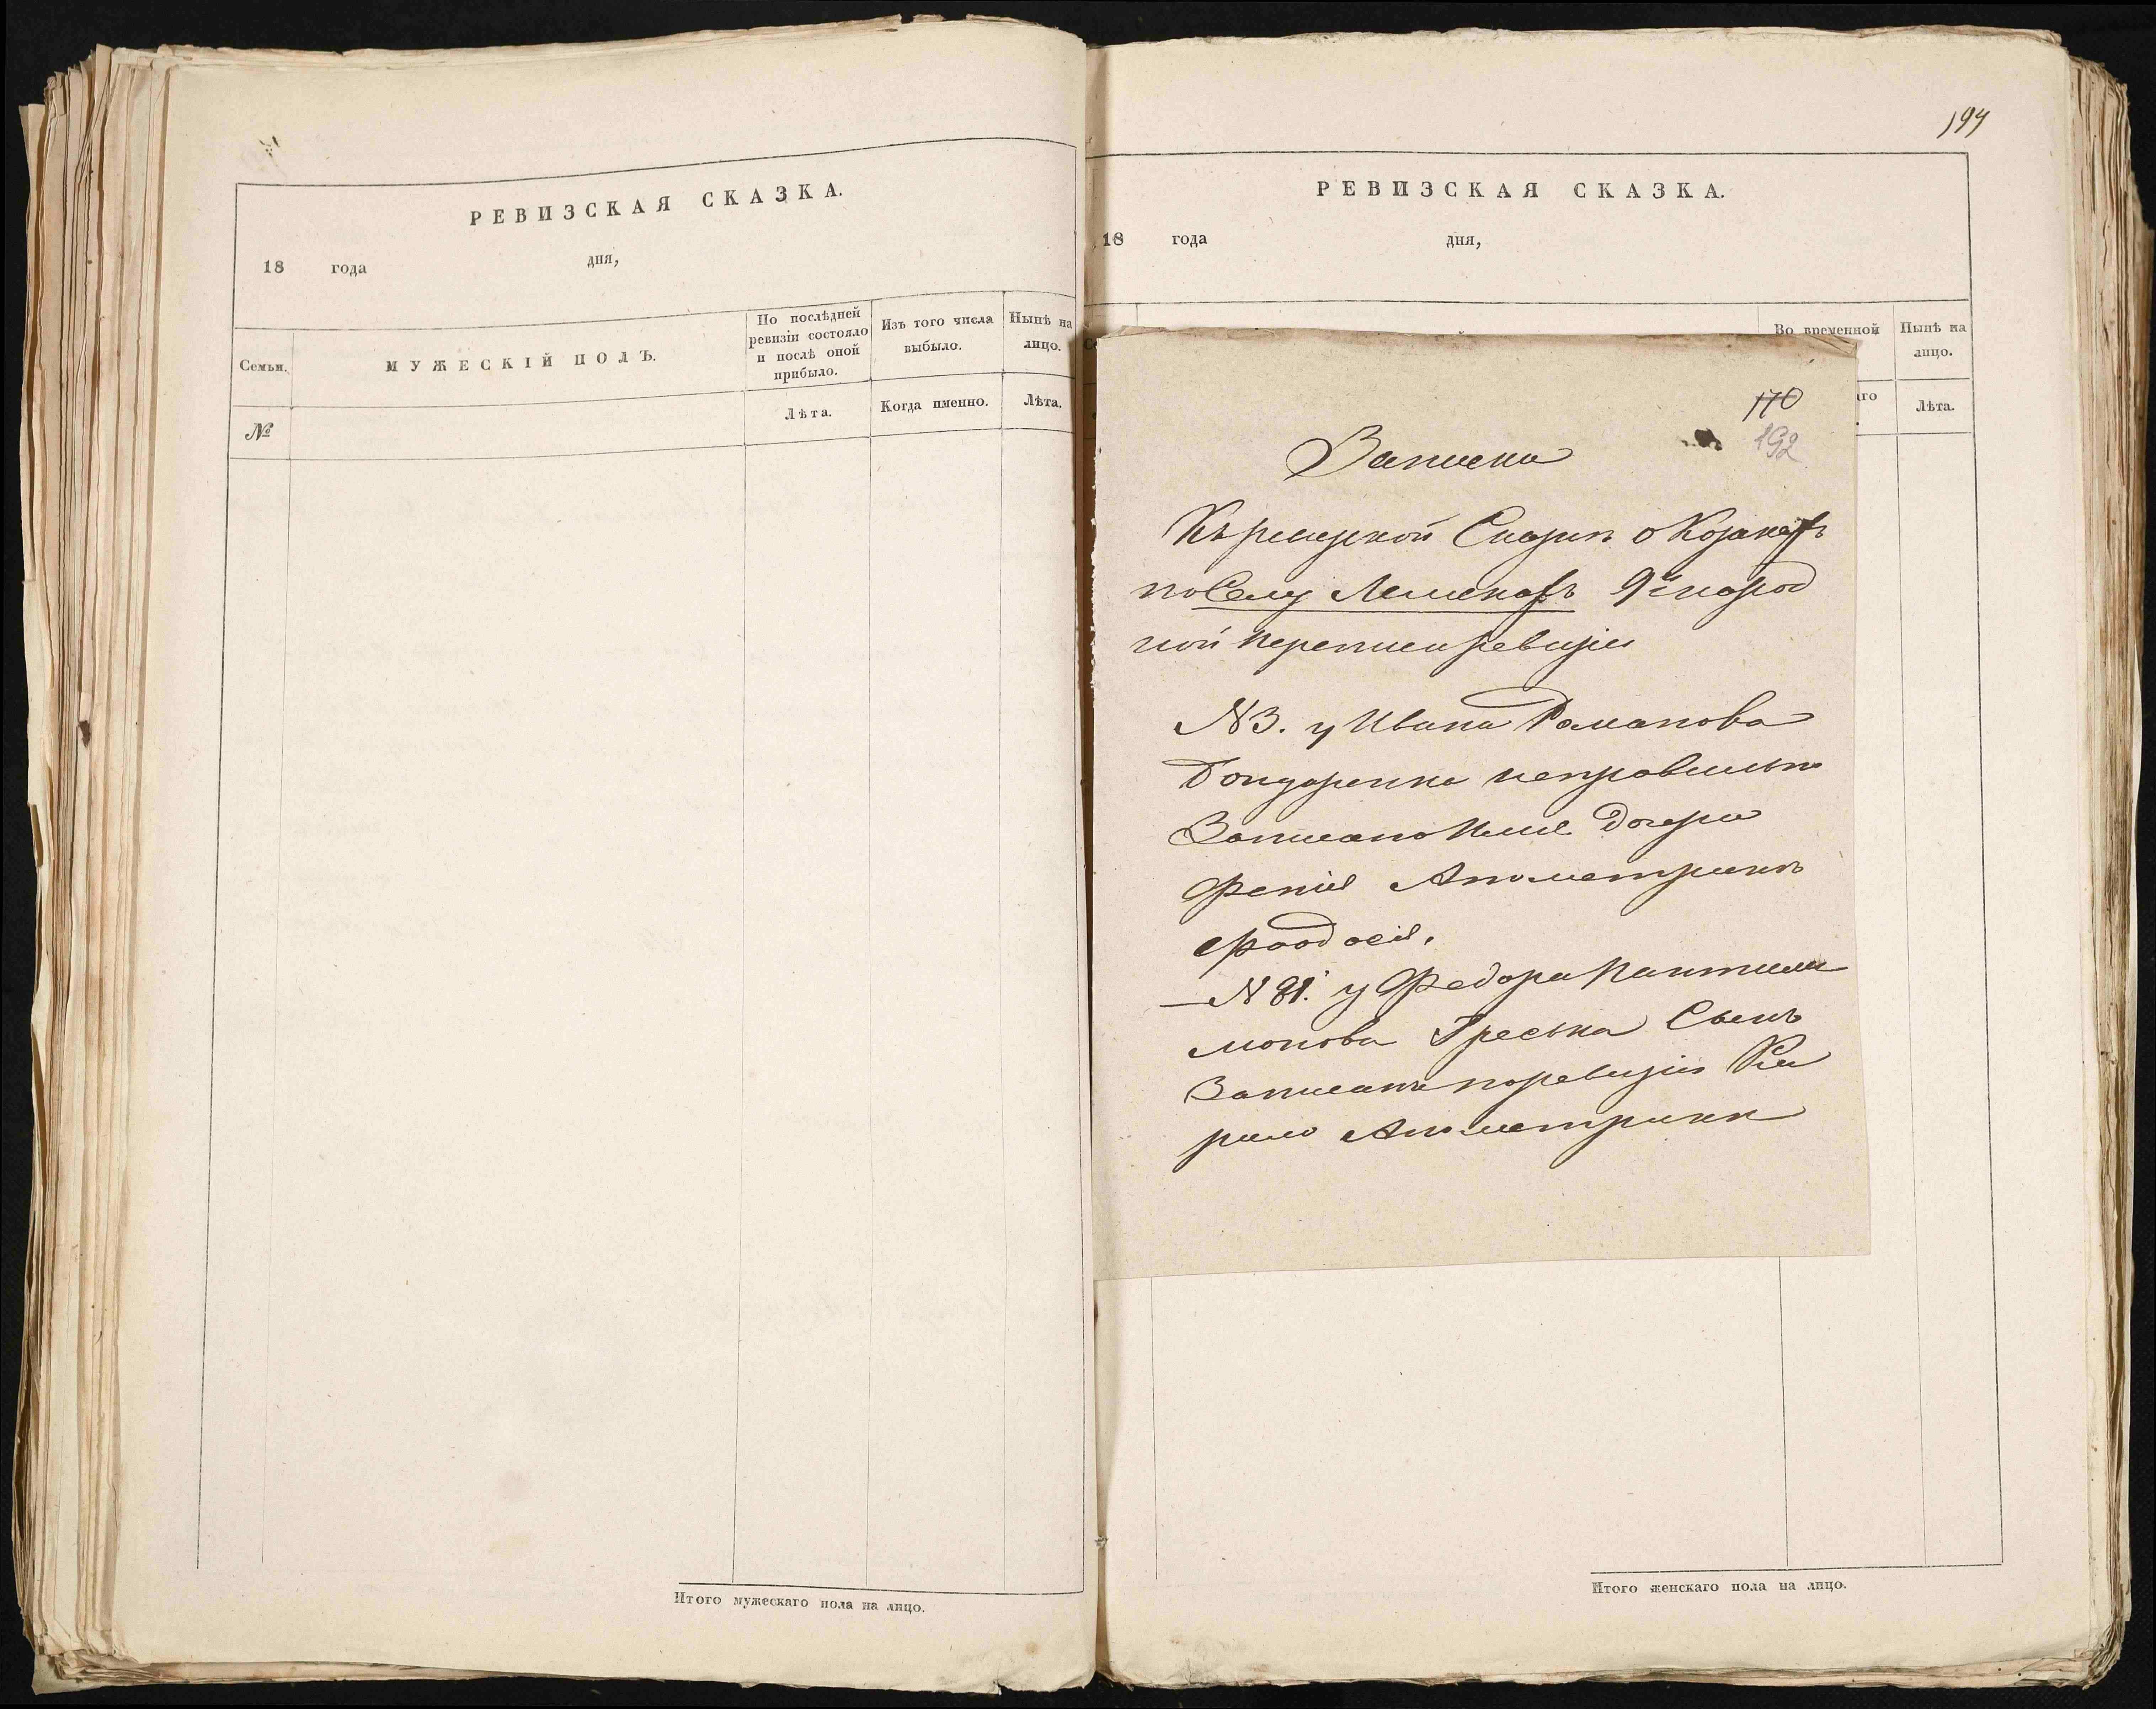 РЕВИЗСКАЯ СКАЗКА.
18 года дня,
Семьи.
МУЖЕСКІЙ ПОЛЪ.
По послѣдней
ревизіи состояло
и послѣ оной
прибыло.
Изъ того числа
выбыло.
Нынѣ на
лицо.
№
Лѣта.
Когда именно.
Лѣта.
Итого мужескаго пола на лицо.
194
РЕВИЗСКАЯ СКАЗКА.
18 года дня,
Во временной
Нынѣ на
лицо.
Лѣта.
170
192
Записка
Къ ревизской Сказкѣ о Козакахъ
по Селу Ляшкахъ 9й народ
ной переписи ревизіи
№3. у Ивана Романова
Бондаренка неправильно
Записано имя Дочери
Фенія А по метрикѣ
Феодосія.
№ 81. у Федора Пантили
монова Греська Сынъ
Записанъ по ревизіи Ки
рило А по метрикѣ
Итого женскаго пола на лицо.